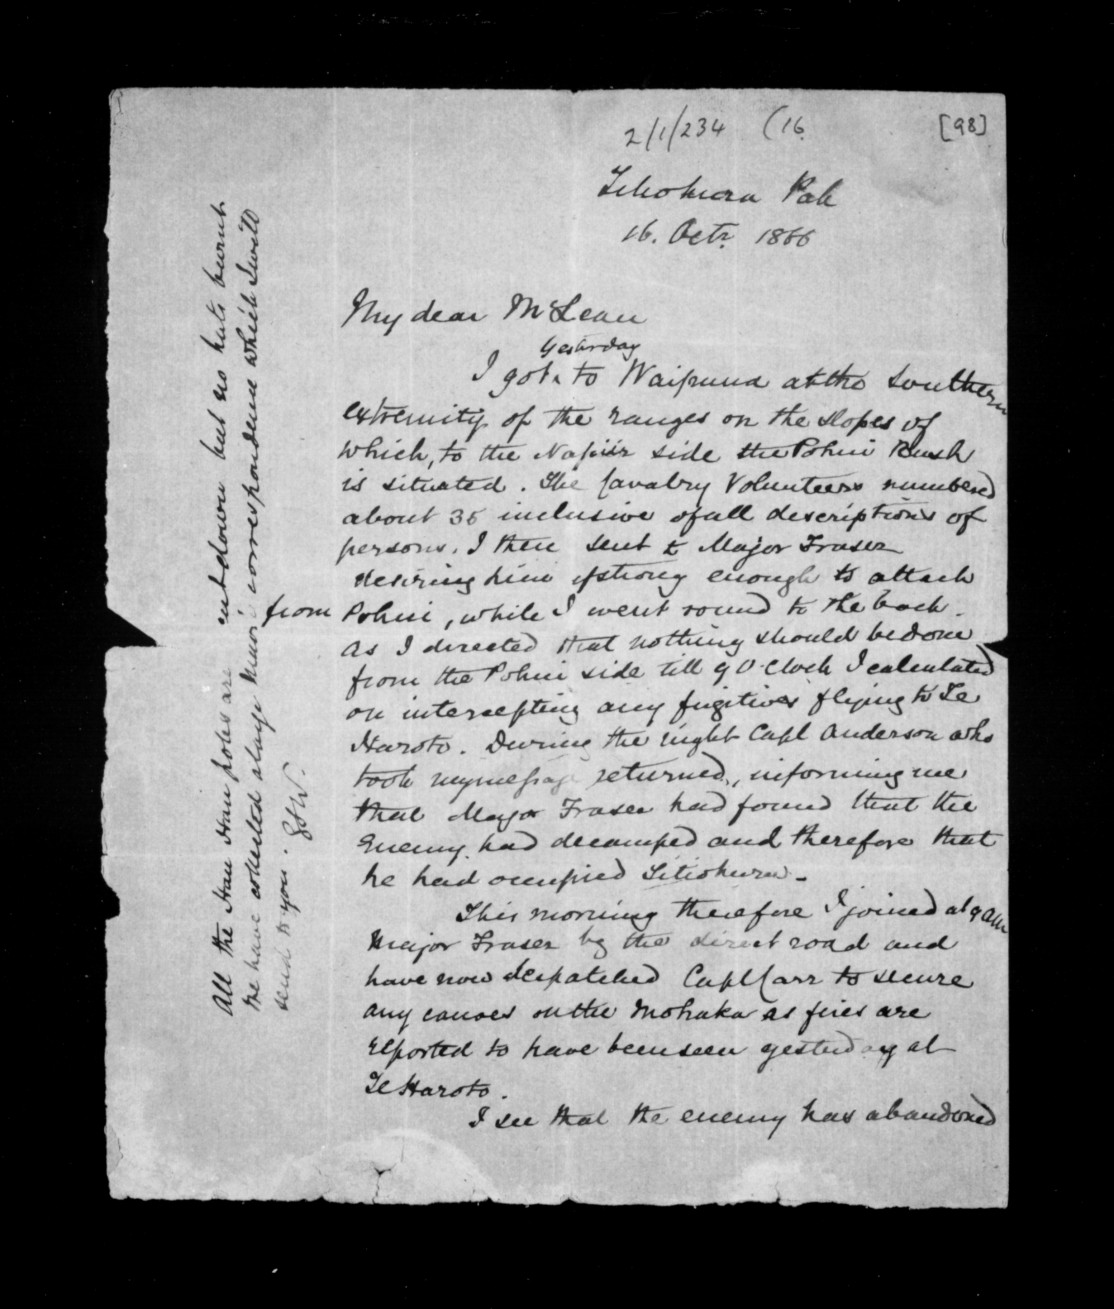 2/1/234 (16.
[98]
Titiohura Pah
16. Octr. 1866
My dear McLean
yesterday
I got to Waipuna at the Southern
extremity of the ranges on the slopes of
which, to the Napier side the Pohui Bush
is situated. The Cavalry Volunteers numbered
about 35 inclusive of all descriptions of
persons. I then sent to Major Fraser
desiring him if strong enough to attack
from Pohui, while I went round to the back.
As I directed that nothing should be done
from the Pohui side till 9 O'Clock I calculated
on intercepting any fugitives flying to Te
Haroto. During the night Capt Anderson who
took my message returned, informing me
that Major Fraser had found that the
Enemy had decamped and therefore that
he had occupied Titiohura.
This morning therefore I joined at 9 am
Major Fraser by the direct road and
have now despatched Capt Carr to secure
any canoes on the Mohaka as fires are
reported to have been seen yesterday at
Te Haroto.
I see that the enemy has abandoned
All the Hau Hau poles are cut down but no huts burnt.
We have collected a large Maori correspondence which I will
send to you. GSW.